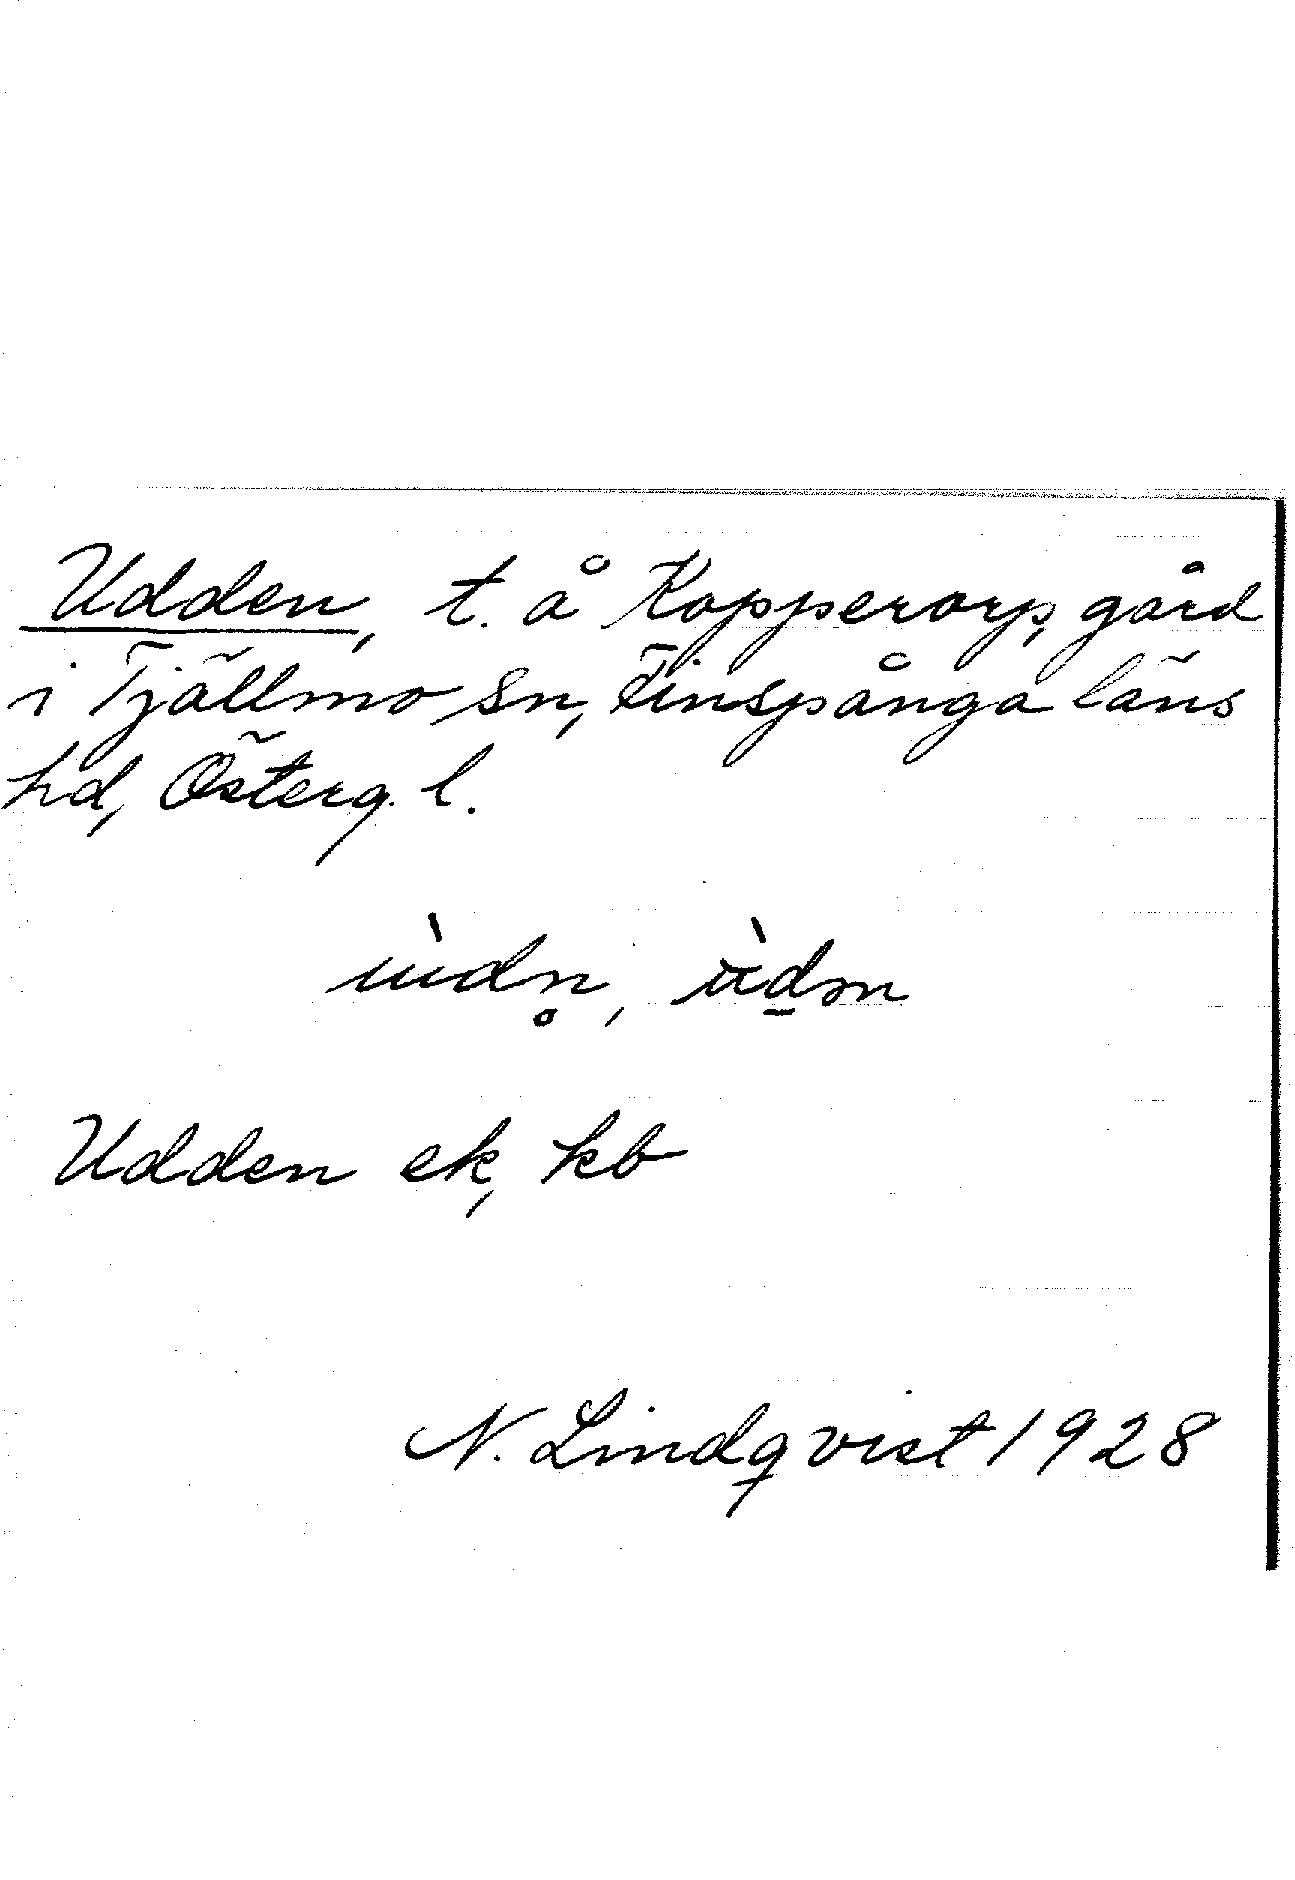 Udden, t. å Kopperorp, gård
i Tjällmo sn, Finspånga läns
hd, Österg. l.
ùdn̥, ùd̲ən
Udden ek, kb
N. Lindqvist 1928